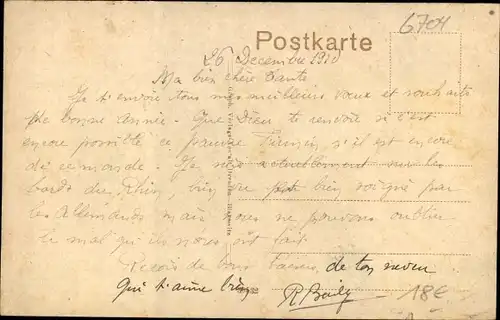 6704
Postkarte
26 Decembre 1918
Ma bien chère Tante
Je t'envoie tous mes meilleurs vœux et souhaits
de bonne année - Que Dieu te renvoie si c'est
encore possible ce pauvre s'il est encore
de ce monde. Je suis actuellement sur les
bords du Rhin, bien bien soigné par
les Allemands mais nous ne pouvons oublier
le mal qu'ils nous ont fait.
Reçois de bons baisers de ton neveu
qui t'aime bien
18€